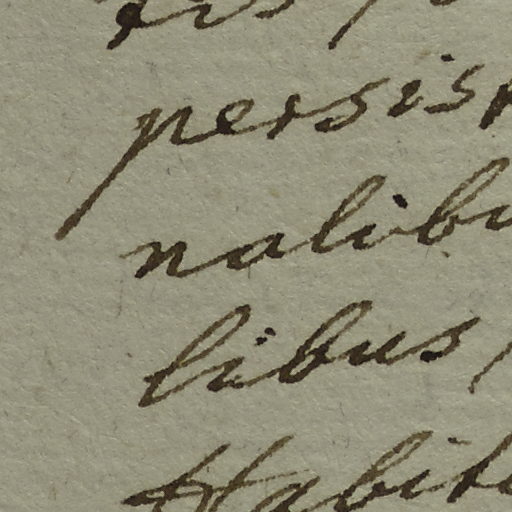 persis
nalibu
libus,
Habit